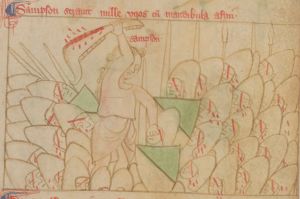 Sampson strauit mille viros cū mandibula asini
sampson